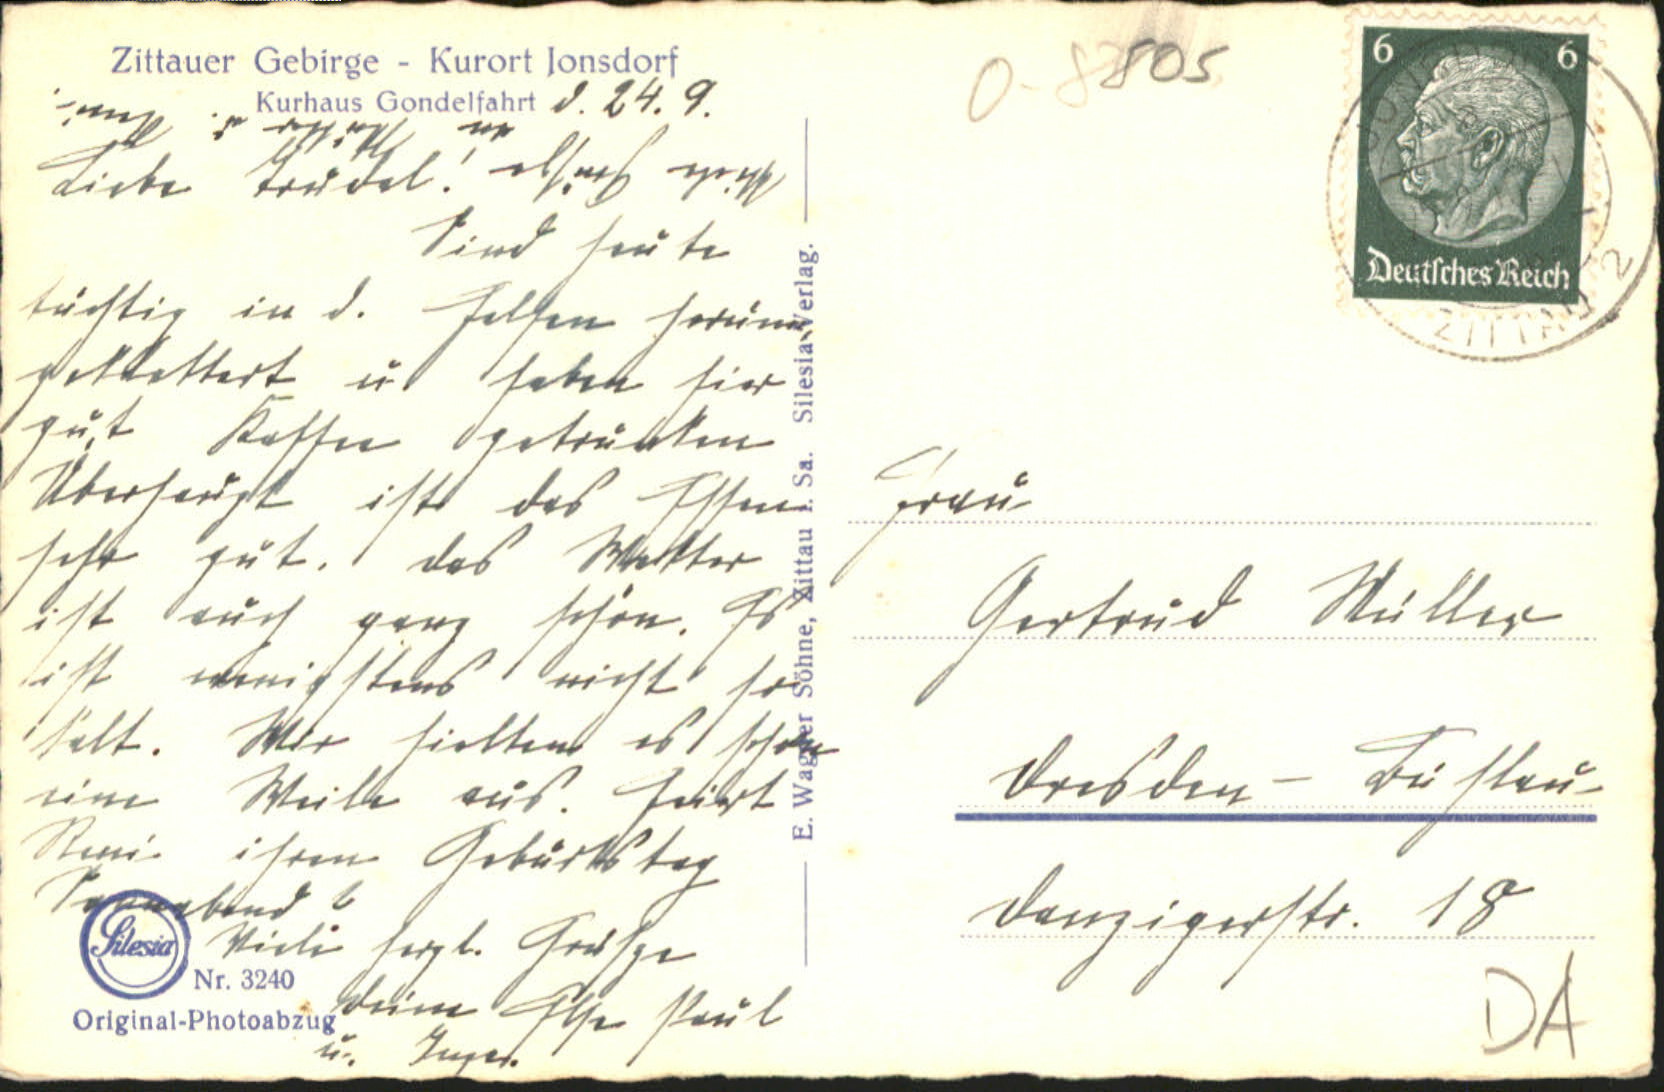 Zittauer Gebirge - Kurort Jonsdorf
Kurhaus Gondelfahrt d. 24. 9.
Liebe Trudel!
Sind heute
tüchtig in d. Felsen herum
geklettert u. haben hier
gut Kaffee getrunken
Überhaupt ist das Essen
sehr gut. Das Wetter
ist auch ganz schön. Es
ist wenigstens nicht so
kalt. Wir hielten es schon
eine Weile aus. Feiert
ihren Geburtstag
Sonnabend?
Viele herzl. Grüße
Deine Else Paul
u. Inge.
Silesia
Nr. 3240
Original-Photoabzug
E. Wagner Söhne, Zittau i. Sa. Silesia-Verlag.
0-8805
6 6
Deutsches Reich
ZITTAU 2
Frau
Gertrud Müller
Dresden - Bühlau
Danzigerstr. 18
DA